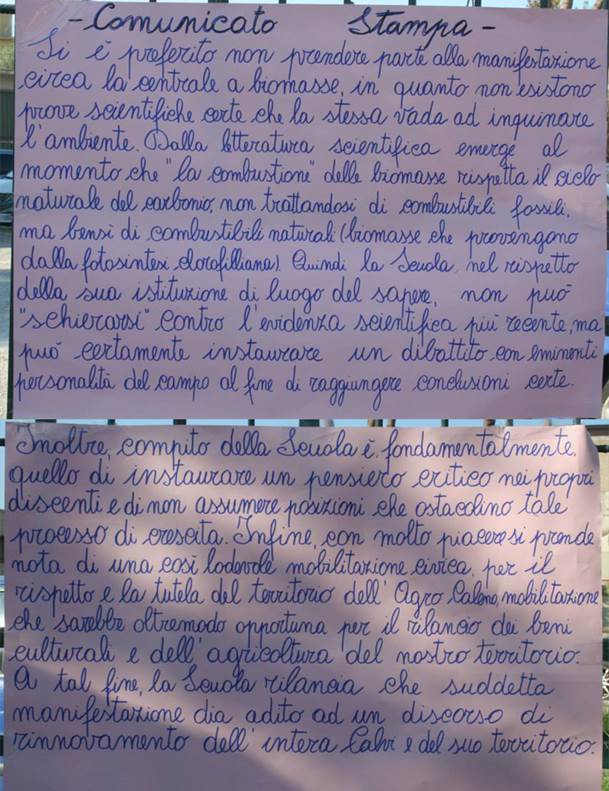 - Comunicato Stampa -
Si è preferito non prendere parte alla manifestazione
circa la centrale a biomasse, in quanto non esistono
prove scientifiche certe che la stessa vada ad inquinare
l'ambiente. Dalla letteratura scientifica emerge al
momento che "la combustione" delle biomasse rispetta il ciclo
naturale del carbonio, non trattandosi di combustibili fossili,
ma bensì di combustibili naturali (biomasse che provengono
dalla fotosintesi clorofilliana). Quindi la Scuola, nel rispetto
della sua istituzione di luogo del sapere, non può
"schierarsi" contro l'evidenza scientifica più recente, ma
può certamente instaurare un dibattito con eminenti
personalità del campo al fine di raggiungere conclusioni certe.
Inoltre, compito della Scuola è, fondamentalmente,
quello di instaurare un pensiero critico nei propri
discenti e di non assumere posizioni che ostacolino tale
processo di crescita. Infine, con molto piacere si prende
nota di una così lodevole mobilitazione civica, per il
rispetto e la tutela del territorio dell'Agro Caleno, mobilitazione
che sarebbe oltremodo opportuna per il rilancio dei beni
culturali e dell'agricoltura del nostro territorio.
A tal fine, la Scuola rilancia che suddetta
manifestazione dia adito ad un discorso di
rinnovamento dell'intera Calvi e del suo territorio.